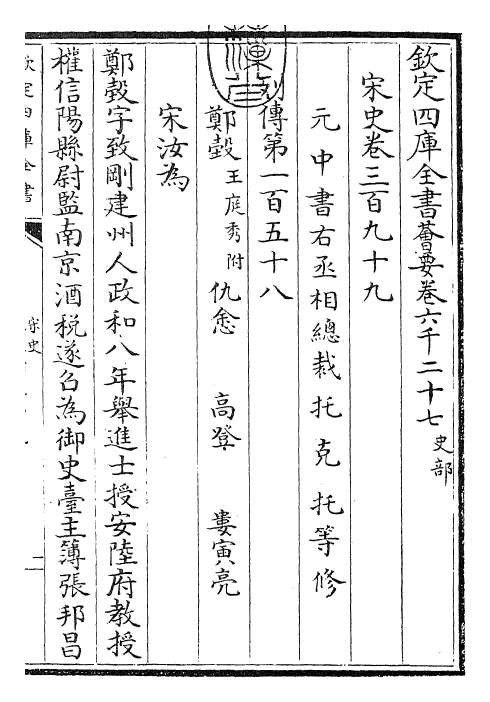 欽定四庫全書薈要卷六千二十七史部
宋史卷三百九十九
元中書右丞相總裁托克托等修
列傳第一百五十八
鄭瑴王庭秀附 仇悆 高登 婁寅亮
宋汝為
鄭瑴字致剛建州人政和八年舉進士授安陸府教授
權信陽縣尉監南京酒稅遂召為御史臺主簿張邦昌
欽定四庫全書
宋史